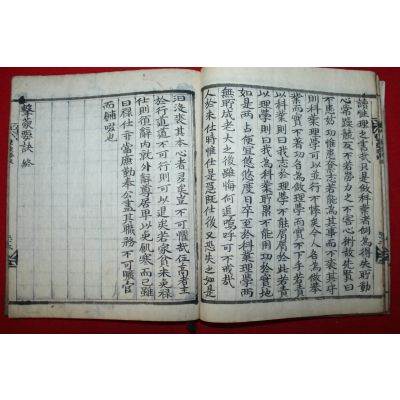 讀性理之書哉只是做科業者例為得失所動
心常躁競反不若勞力之不害心術故先賢曰
不患妨功惟患奪志若能為其事而不喪其守
則科業理學可以並行不悖矣今人名為做舉
業而實不著功名為做理學而實不下手若責
以科業則曰我志於理學不能屑屑於此若責
以理學則曰我為科業所累不能用功於實地
如是兩占便宜悠悠度日卒至於科業理學兩
無所成老大之後雖悔何追嗚呼可不戒哉
人於未仕時惟仕是急既仕後又恐失之如是
汨沒喪其本心者多矣豈不可懼哉位高者主
於行道道不可行則可以退矣若家貧未免祿
仕則須辭內就外辭尊居卑以免飢寒而已雖
曰祿仕亦當廉勤奉公盡其職務不可曠官
而餔啜也
擊蒙要訣 終